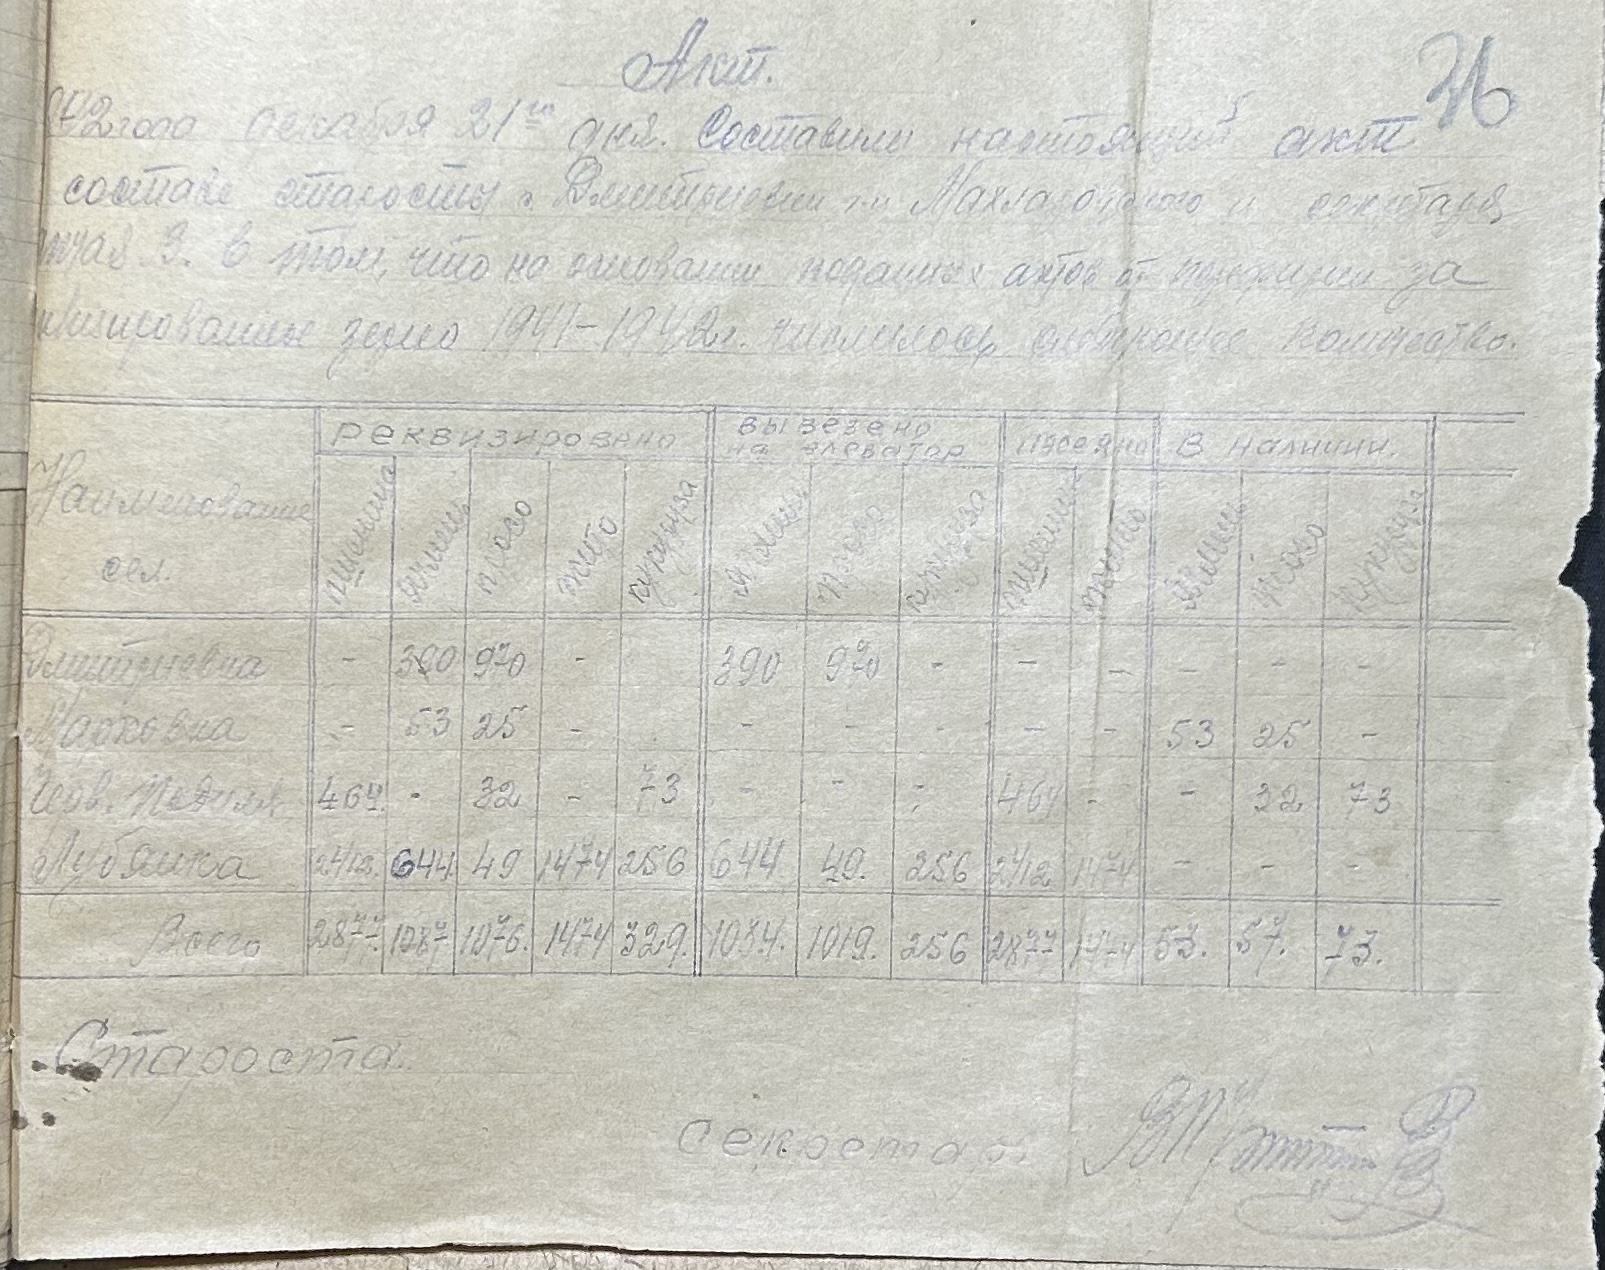 Акт.
76
942 года декабря 21го дня. Составили настоящий акт
составе старосты с. Дмитриевки и секретаря
З. в том, что на основании поданных актов от за
зерно 1941-1942г. числилось следующее количество.
Наименование сел. реквизировано вывезено на элеватор посеяно в наличии.
пшеница ячмень просо жито кукуруза ячмень просо кукуруза пшеница жито ячмень просо кукуруза
Дмитриевка - 390 970 - 390 970 - - - - - -
Марковка - 53 25 - - - - - - 53 25 -
Черв. Подиля 464 - 32 - 73 - - - 464 - - 32 73
Лубянка 2413. 644 49 1474 256 644 49. 256 2412 1474 - - -
Всего 2877. 1087 1076. 1474 329. 1034. 1019. 256 2877 1474 53. 57. 73.
Староста.
Секретарь